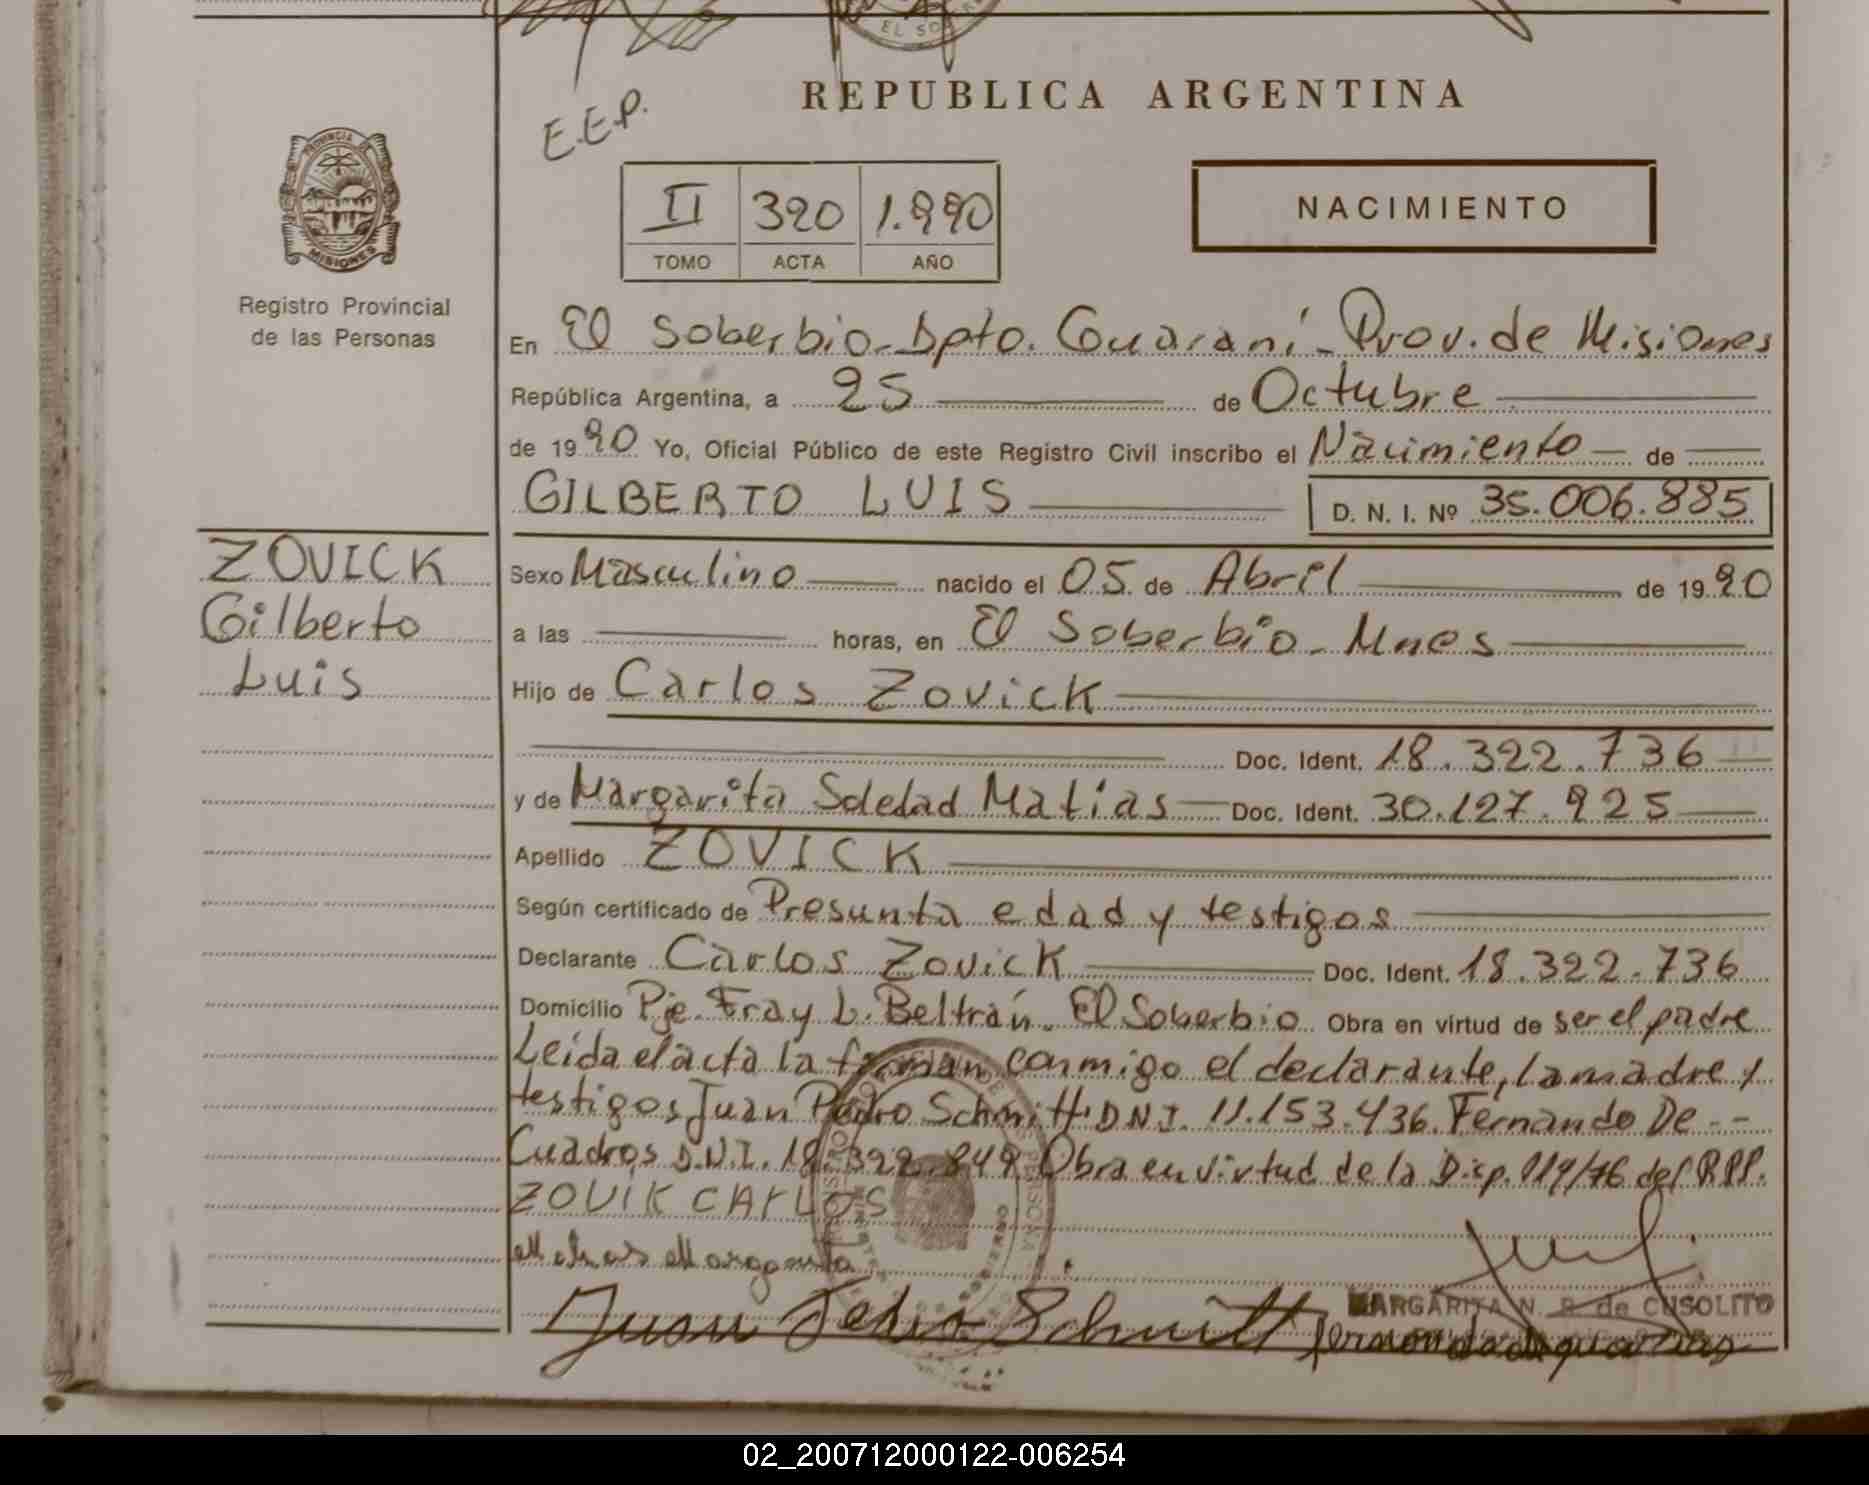 EL SO
REPUBLICA ARGENTINA
E.E.P.
PROVINCIA DE
MISIONES
Registro Provincial
de las Personas
II 320 1.990
TOMO ACTA AÑO
NACIMIENTO
En El Soberbio - Dpto. Guaraní - Prov. de Misiones
República Argentina, a 25 de Octubre
de 1990 Yo, Oficial Público de este Registro Civil inscribo el Nacimiento de
GILBERTO LUIS
D. N. I. Nº 35.006.885
ZOVICK
Gilberto
Luis
Sexo Masculino nacido el 05 de Abril de 1990
a las horas, en El Soberbio - Mnes
Hijo de Carlos Zovick
Doc. Ident. 18.322.736
y de Margarita Soledad Matías Doc. Ident. 30.127.925
Apellido ZOVICK
Según certificado de Presunta edad y testigos
Declarante Carlos Zovick Doc. Ident. 18.322.736
Domicilio Pje. Fray L. Beltrán - El Soberbio Obra en virtud de ser el padre
Leida el acta la firman conmigo el declarante, la madre y
testigos Juan Pedro Schmitt D.N.I. 11.153.436. Fernando De --
Cuadros D.N.I. 18.322.849 Obra en virtud de la Disp. 119/76 del RPP.
ZOVIK CARLOS
Margarita
Juan Pedro Schmitt
MARGARITA N. P. de CUSOLITO
02_200712000122-006254